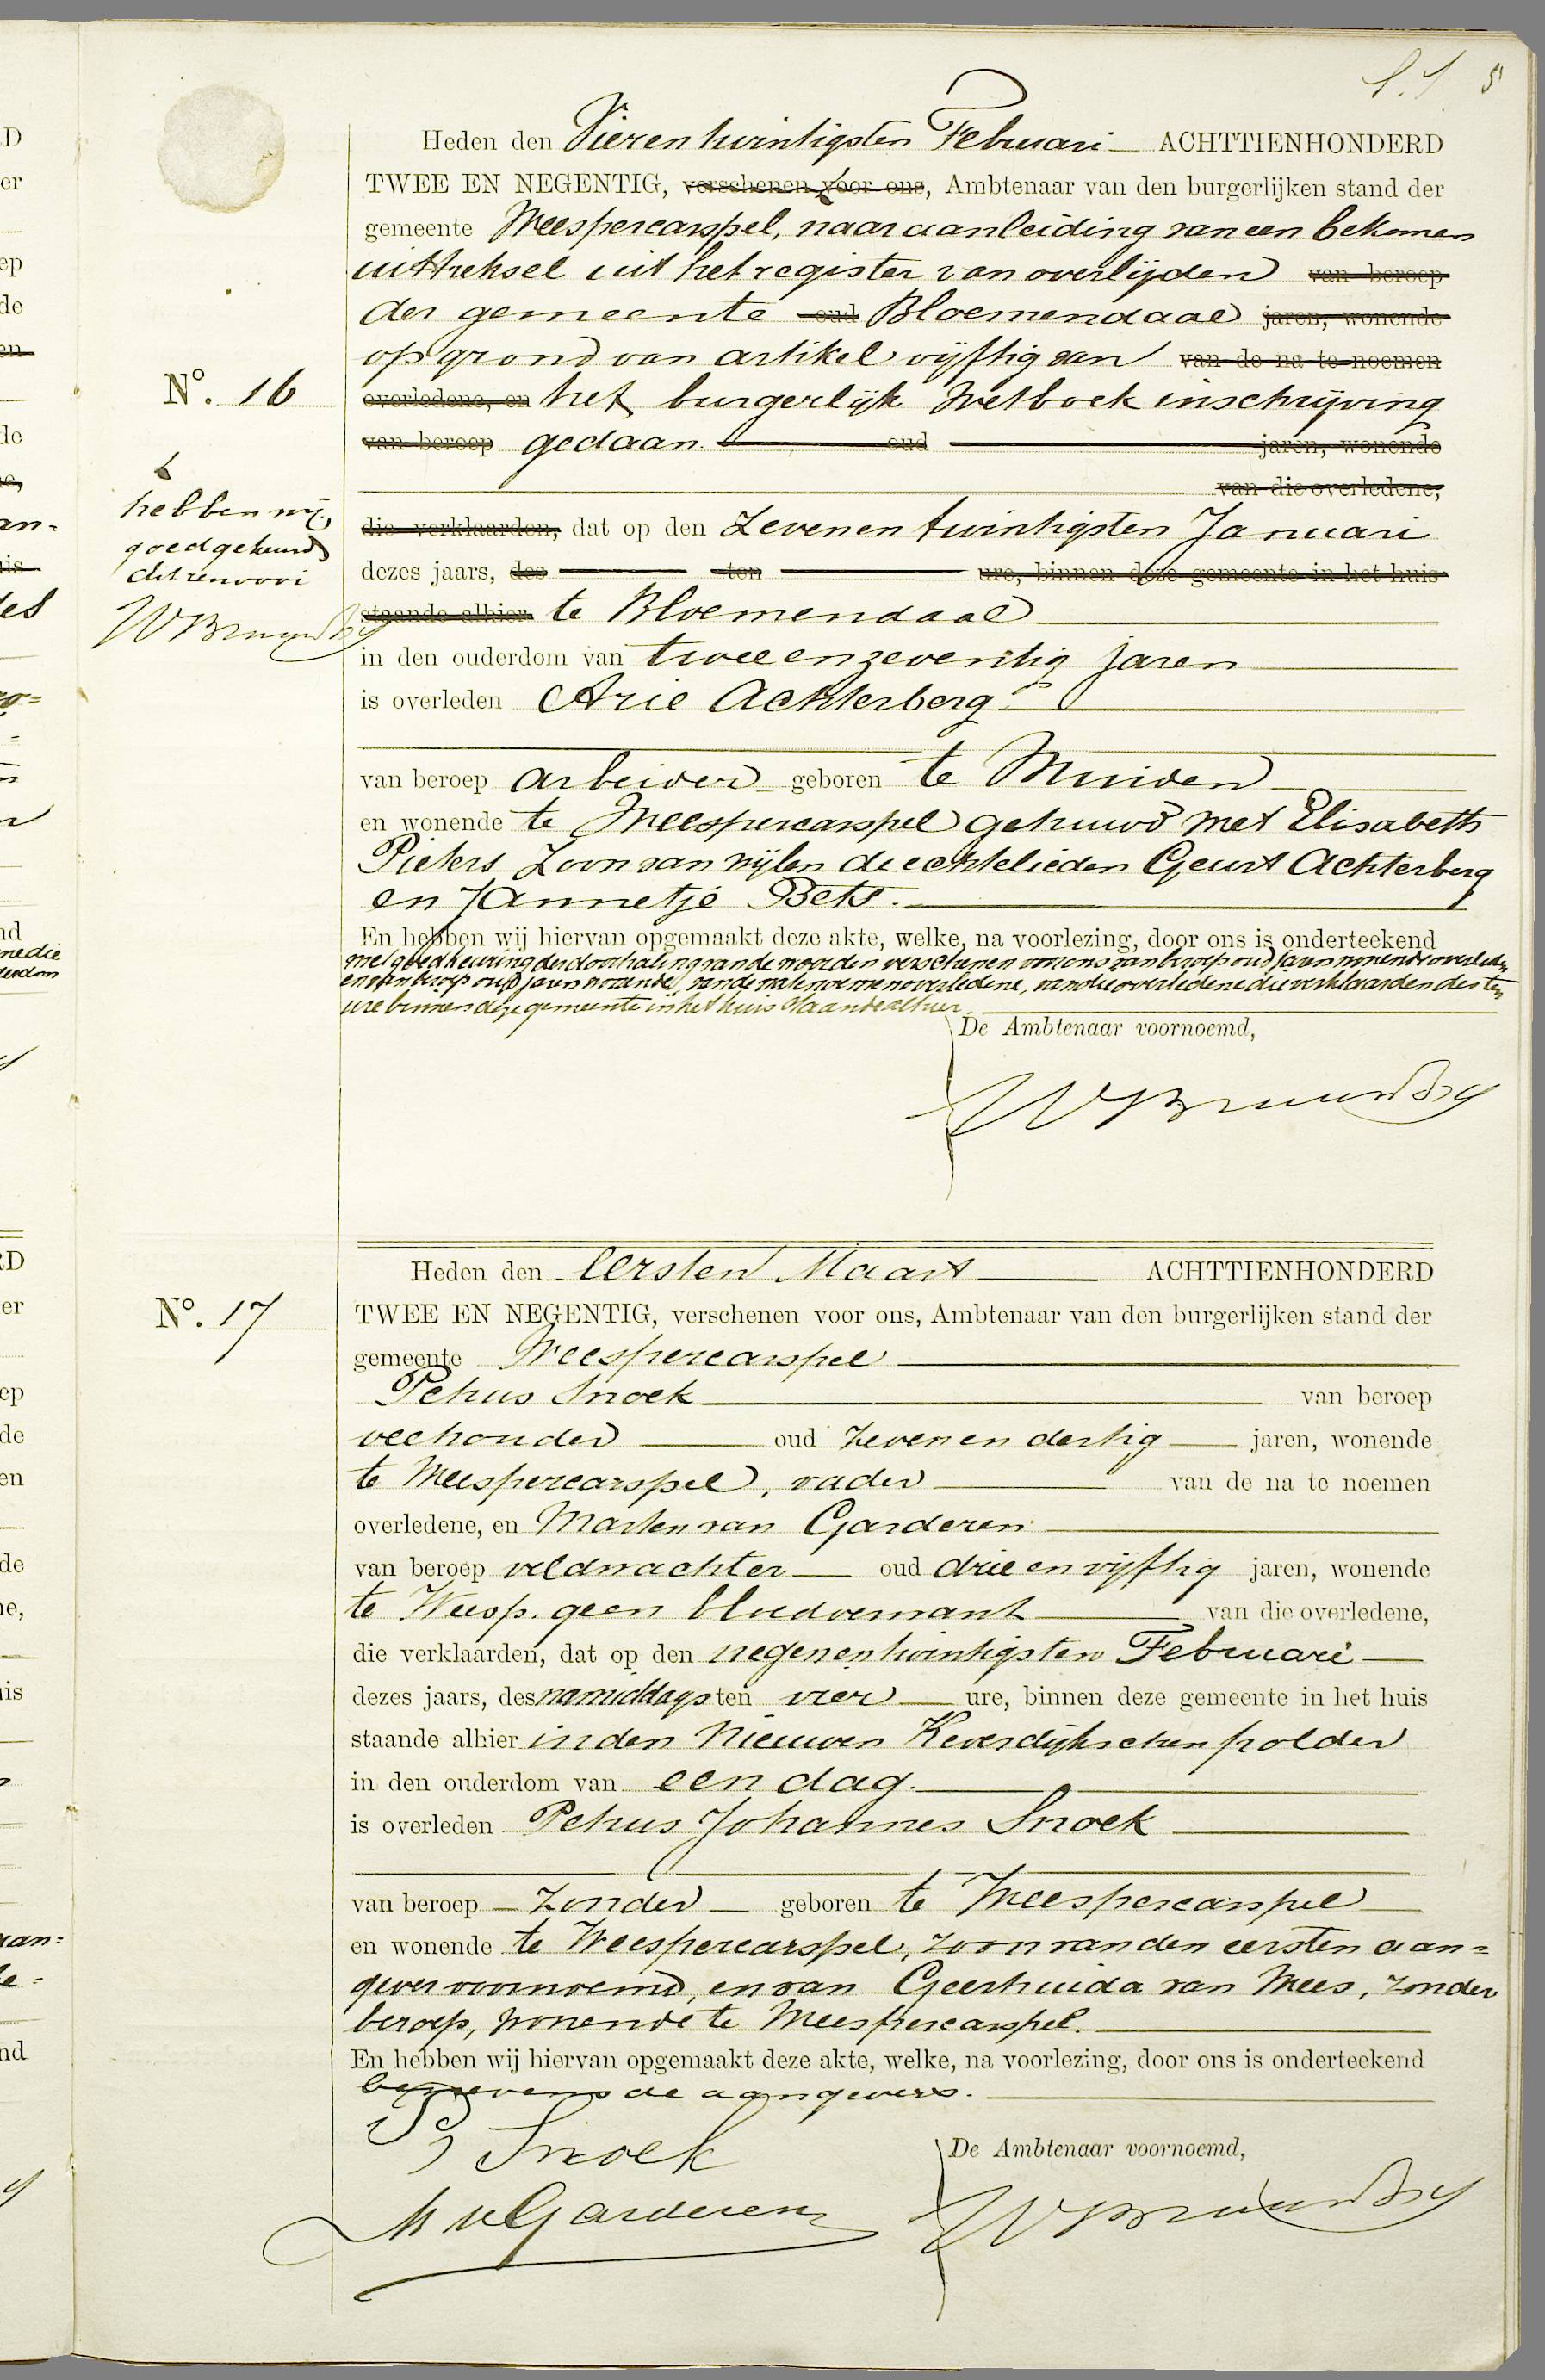 5
Heden den Vierentwintigsten Februari ACHTTIENHONDERD
TWEE EN NEGENTIG, verschenen voor ons, Ambtenaar van den burgerlijken stand der
gemeente Weespercarspel, naar aanleiding van een bekomen
uittreksel uit het register van overlijden van beroep
der gemeente oud Bloemendaal jaren, wonende
op grond van artikel vijftig van van de na te noemen
No. 16 overledene, en het burgerlijk Wetboek inschrijving
van beroep gedaan. oud jaren, wonende
van die overledene,
hebben wij,
goedgekeurd
dit renvooi
WBruyn
die verklaarden, dat op den Zevenentwintigsten Januari
dezes jaars, des ten ure, binnen deze gemeente in het huis
staande alhier te Bloemendaal
in den ouderdom van tweeenzeventig jaren
is overleden Arie Achterberg
van beroep arbeider geboren te Muiden
en wonende te Weespercarspel gehuwd met Elisabeth
Pieters Zoon van wijlen de echtelieden Geurt Achterberg
en Jannetje Bets.
En hebben wij hiervan opgemaakt deze akte, welke, na voorlezing, door ons is onderteekend
met goedkeuring der doorhaling van de woorden verschenen voor ons van beroep oud jaren wonende overledene
en van beroep oud jaren wonende, van de na te noemen overledene, van die overledene die verklaarden des ten
ure binnen deze gemeente in het huis staande alhier.
De Ambtenaar voornoemd,
Heden den Eersten Maart ACHTTIENHONDERD
No. 17 TWEE EN NEGENTIG, verschenen voor ons, Ambtenaar van den burgerlijken stand der
gemeente Weespercarspel
Petrus Snoek van beroep
veehouder oud Zeven en dertig jaren, wonende
te Weespercarspel, vader van de na te noemen
overledene, en Marten van Garderen
van beroep veldwachter oud drie en vijftig jaren, wonende
te Weesp. geen bloedverwant van die overledene,
die verklaarden, dat op den negenentwintigsten Februari
dezes jaars, des namiddags ten vier ure, binnen deze gemeente in het huis
staande alhier in den Nieuwen Keverdijkschen polder
in den ouderdom van een dag.
is overleden Petrus Johannes Snoek
van beroep Zonder geboren te Weespercarspel
en wonende te Weespercarspel, zoon van den eersten aan=
gever voornoemd, en van Geertruida van Mees, zonder
beroep, wonende te Weespercarspel.
En hebben wij hiervan opgemaakt deze akte, welke, na voorlezing, door ons is onderteekend
benevens de aangevers.
P Snoek
De Ambtenaar voornoemd,
M v Garderen